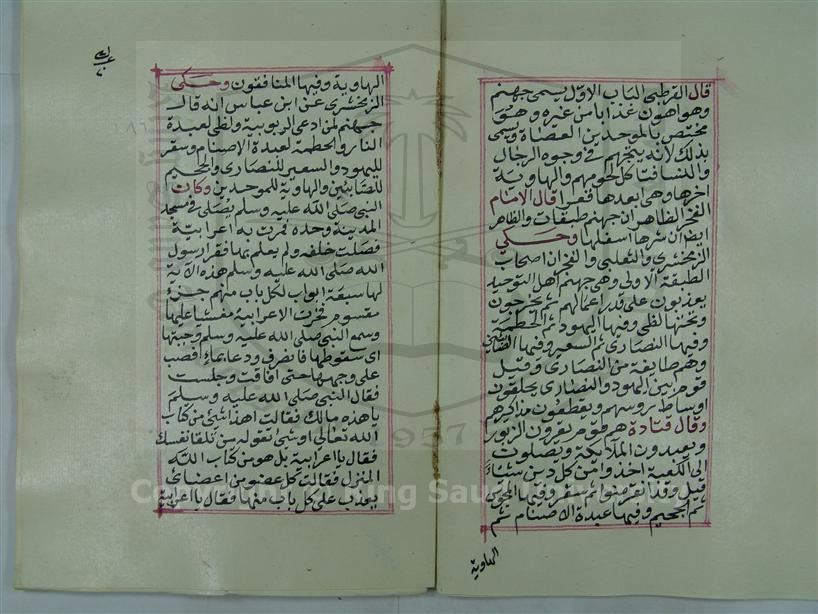 قال القرطبى الباب الاول يسمى جهنم
وهو اهون عذابا من غيره وهو
مختص بالموحدين العصاة ويسمى
بذلك لانه يتجهم فى وجوه الرجال
والنسا فتاكل لحومهم والهاوية
اخرها وهى ابعدها قعرا قال الامام
الفخر الظاهر ان جهنم طبقات والظاهر
ايضا ان شرها اسفلها وحكى
الزمخشرى والثعلبى والفخر ان اصحاب
الطبقة الاولى وهى جهنم اهل التوحيد
يعذبون على قدر اعمالهم ثم يخرجون
وتحتها لظى وفيها اليهود ثم الحطمة
وفيها النصارى ثم السعير وفيها الصابئين
وهم طايفة من النصارى وقيل
قوم بين اليهود والنصارى يحلقون
اوساط روسهم ويقطعون مذاكرهم
وقال قتادة هم قوم يقرون الزبور
ويعبدون الملايكة ويصلون
الى الكعبة اخذوا من كل دين شيئا
ثم الجحيم وفيها عبدة الاصنام ثم
الهاوية
الهاوية وفيها المنافقون وحكى
الزمخشرى عن ابن عباس انه قال
جهنم لمن ادعى الربوبية ولظى لعبدة
النار والحطمة لعبدة الاصنام وسقر
لليهود والسعير للنصارى والجحيم
للصابئين والهاوية للموحدين وكان
النبى صلى الله عليه وسلم يصلى فى مسجد
المدينة وحده فمرت به اعرابية
فصلت خلفه ولم يعلم بها فقرا رسول
الله صلى الله عليه وسلم هذه الاية
لها سبعة ابواب لكل باب منهم جزء
مقسوم فخرت الاعرابية مغشيا عليها
وسمع النبى صلى الله عليه وسلم وجبتها
اى سقوطها فانصرف ودعا بماء فصب
على وجهها حتى افاقت وجلست
فقال النبى صلى الله عليه وسلم
يا هذه مالك فقالت اهذا شئ من كتاب
الله تعالى او شئ تقوله من تلقا نفسك
فقال يا اعرابية بل هو من كتاب الله
المنزل فقالت كل عضو من اعضائى
يعذب على كل باب منها فقال يا اعرابية